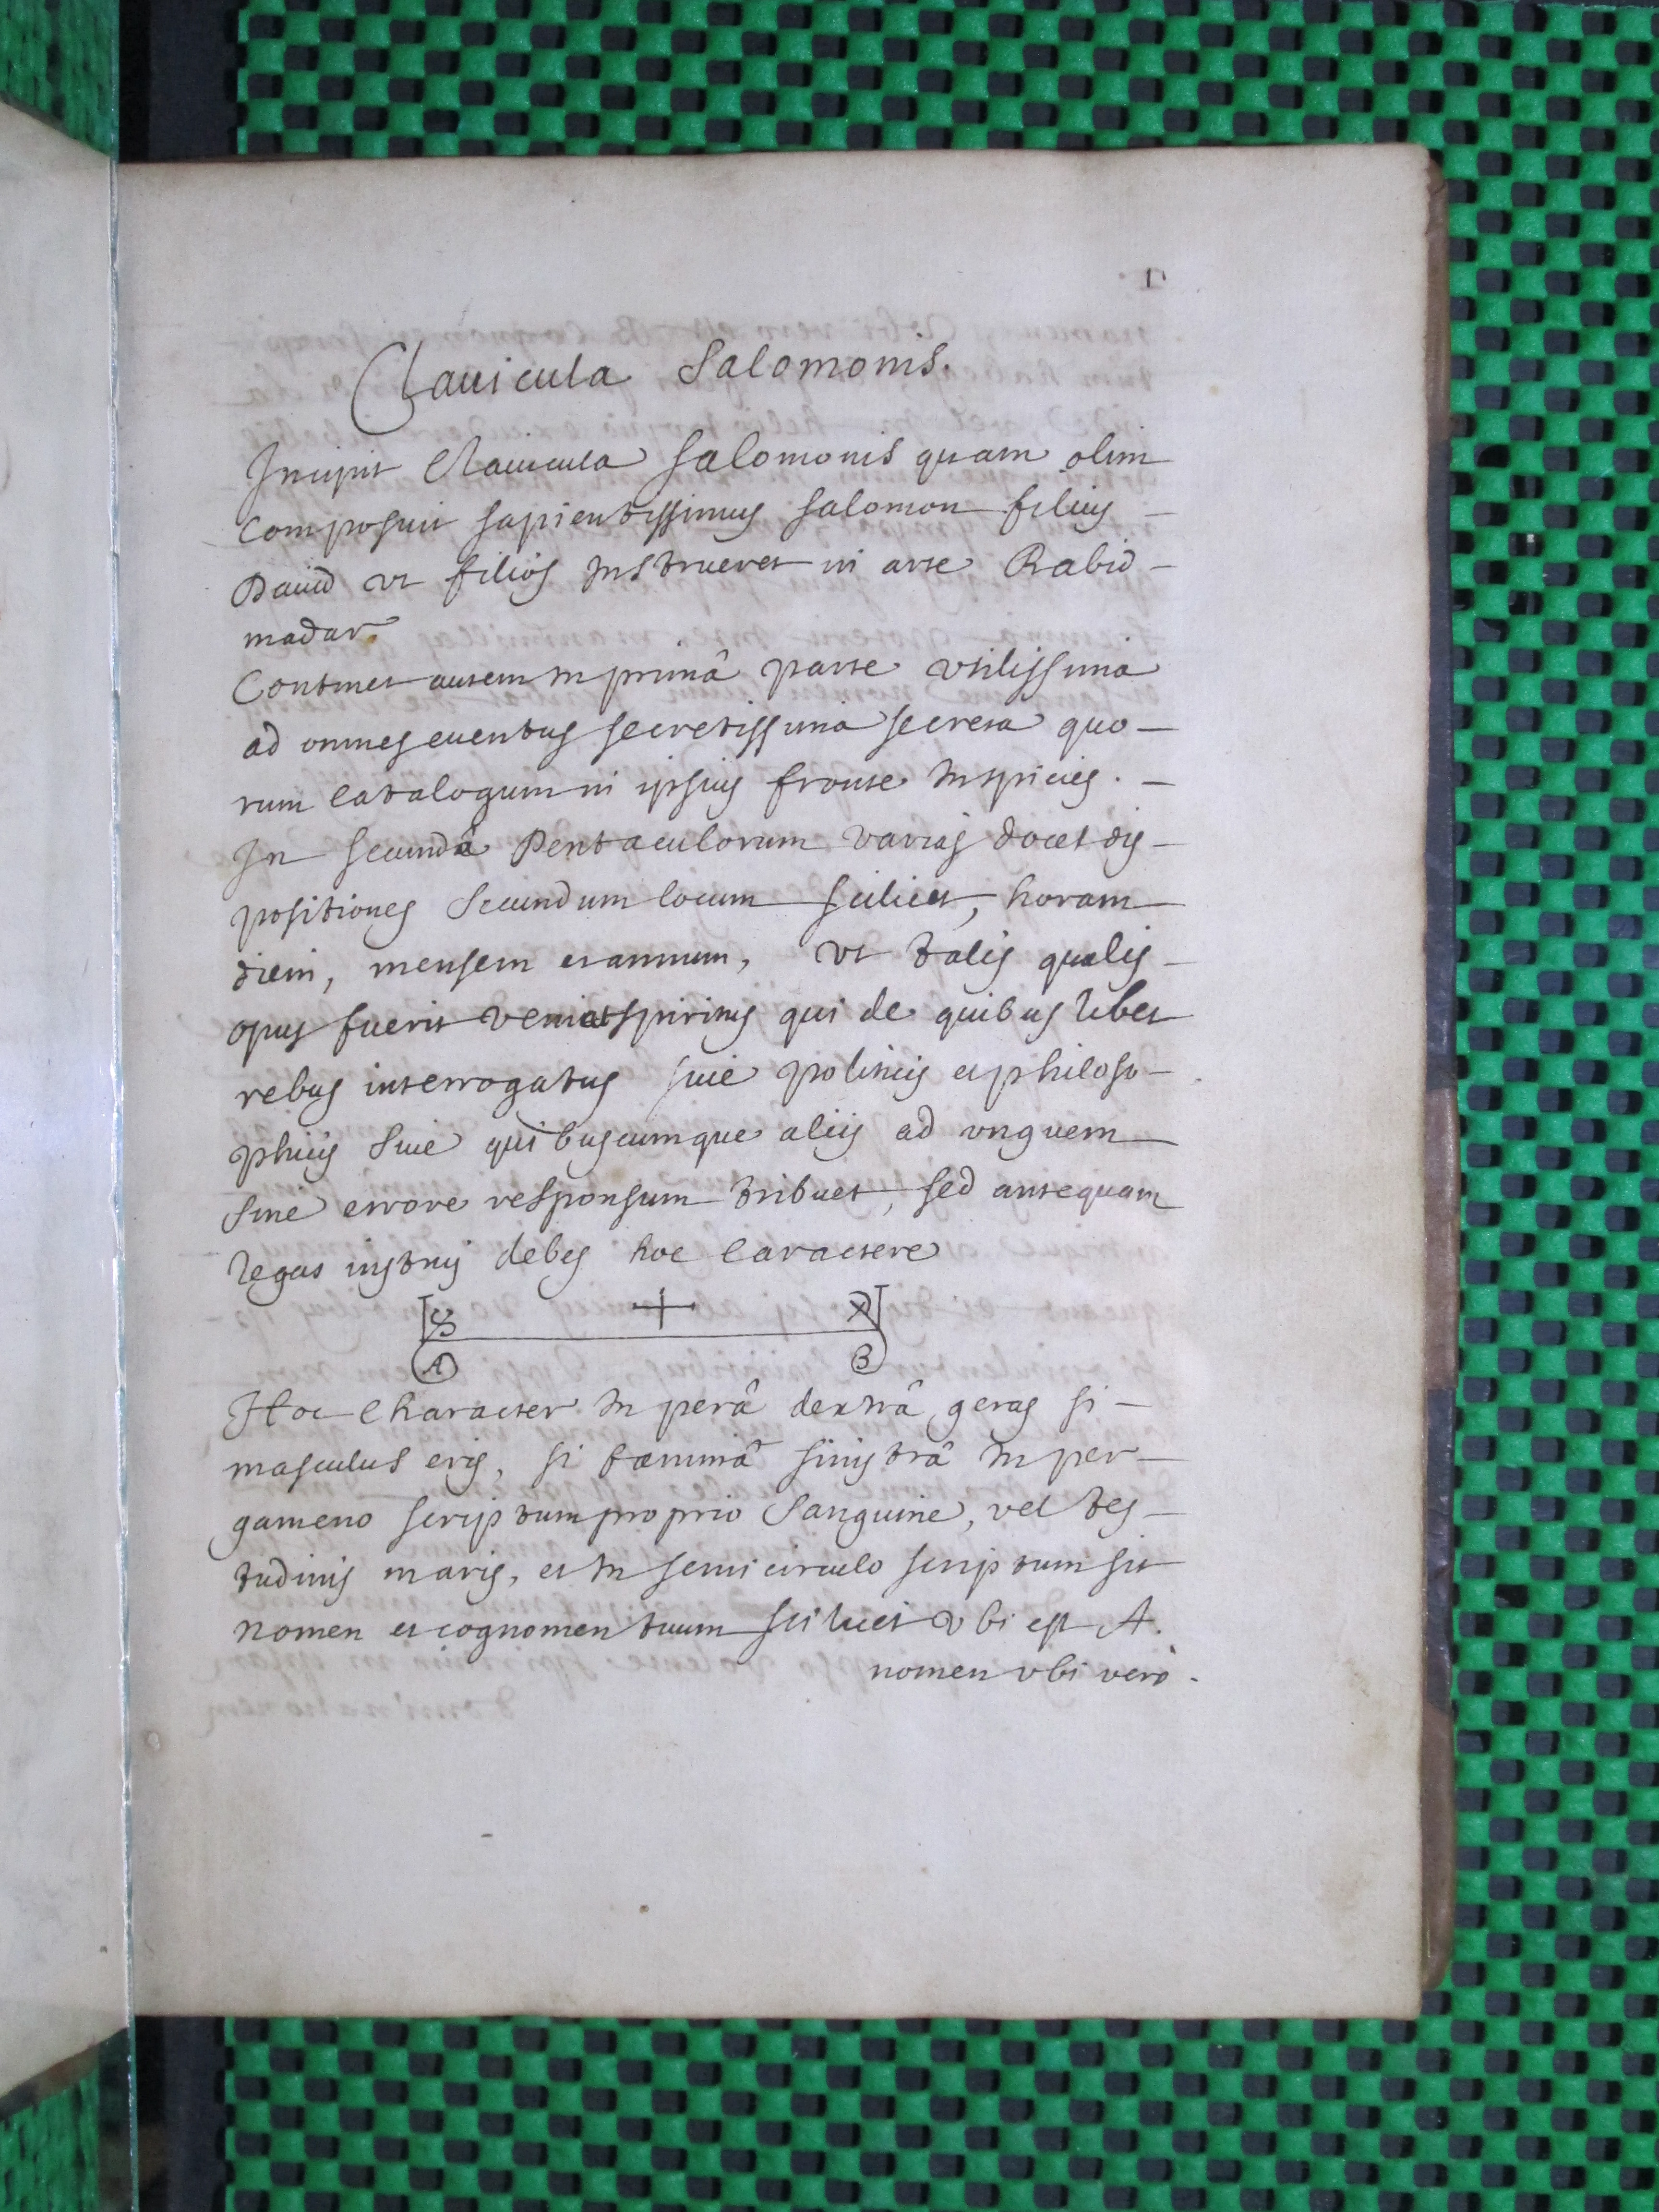 1
Clauicula Salomonis.
Incipit Clauicula Salomonis quam olim
composuit sapientissimus Salomon filius -
Dauid vt filios instrueret in arte Rabid -
madar.
Continet autem in primâ parte vtilissima
ad omnes euentus secretissima secreta quo -
rum catalogum in ipsius fronte inspicies. -
In secundâ Pentaculorum varias docet dis -
positiones secundum locum scilicet, horam
diem, mensem et annum, vt talis qualis -
opus fuerit veniat spiritus qui de quibus libet
rebus interrogatus siue politicis et philoso -
phicis siue quibuscumque aliis ad vnguem
sine errore responsum tribuet, sed antequam
legas instrui debes hoc caractere
A B
Hoc character in perâ dextrâ geras si -
masculus eris, si fæminâ sinistrâ in per -
gameno scriptum proprio sanguine, vel tes -
tudinis maris, et in semicirculo scriptum sit
nomen et cognomen tuum scilicet vbi est A.
nomen vbi verò -